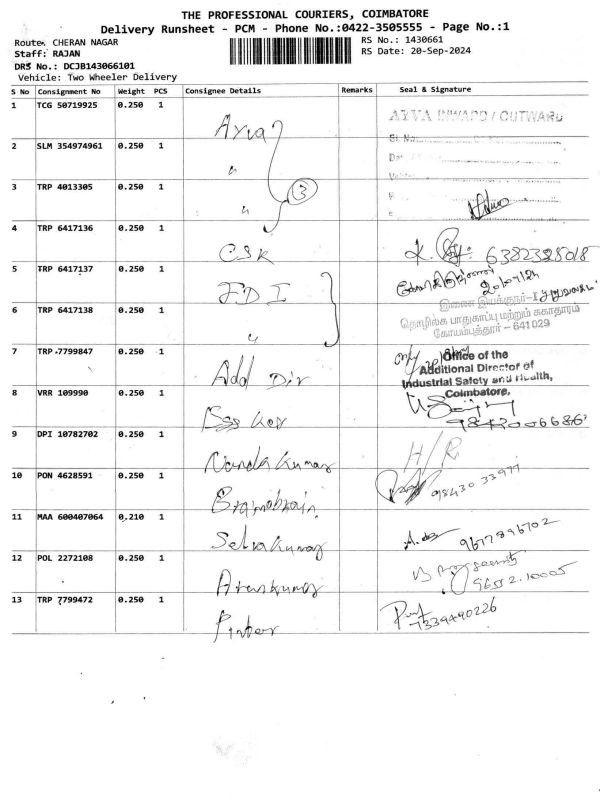 THE PROFESSIONAL COURIERS, COIMBATORE
Delivery Runsheet - PCM - Phone No.:0422-3505555 - Page No.:1
Route: CHERAN NAGAR
RS No.: 1430661
Staff: RAJAN
RS Date: 20-Sep-2024
DRS No.: DCJB143066101
Vehicle: Two Wheeler Delivery
S No Consignment No Weight PCS Consignee Details Remarks Seal & Signature
1 TCG 50719925 0.250 1 Arya AIVA INWARD / OUTWARD
2 SLM 354974961 0.250 1 "
3 TRP 4013305 0.250 1 " 3
4 TRP 6417136 0.250 1 CSK 6382328018
5 TRP 6417137 0.250 1 JDI
இணை இயக்குநர்-I
6 TRP 6417138 0.250 1 "
தொழிலக பாதுகாப்பு மற்றும் சுகாதாரம்
கோயம்புத்தூர் - 641 029
7 TRP 7799847 0.250 1 Add Dir
Office of the
Additional Director of
Industrial Safety and Health,
Coimbatore.
8 VRR 109990 0.250 1
9842006686
9 DPI 10782702 0.250 1 Nanda Kumar H/R
10 PON 4628591 0.250 1 98430 33977
11 MAA 600407064 0.210 1 Selvakumar 9677896702
12 POL 2272108 0.250 1 Arunkumar
13 TRP 7799472 0.250 1 Printer
7339490226